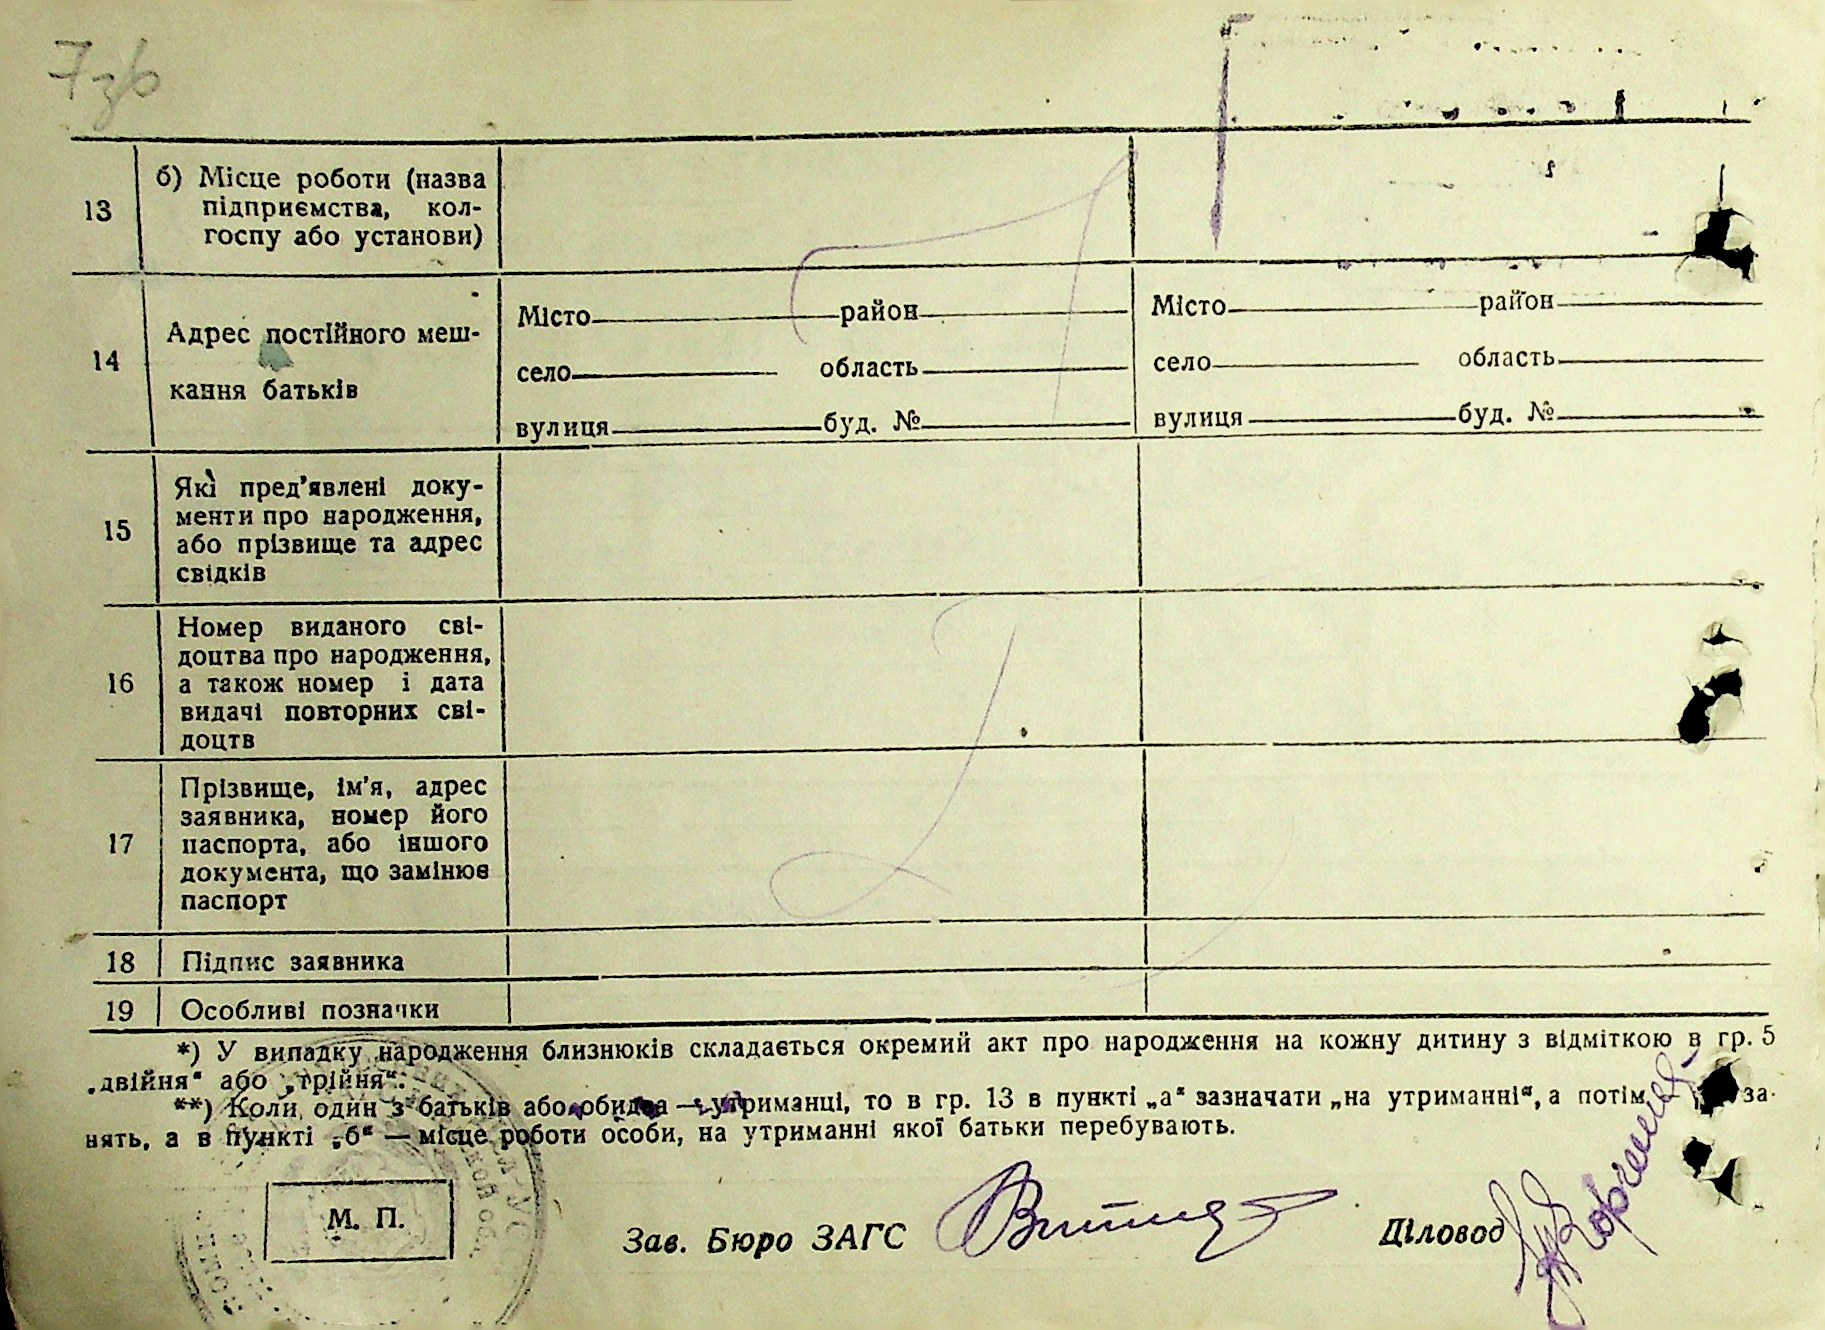 7зв
13
б) Місце роботи (назва
підприємства, кол-
госпу або установи)
14
Адрес постійного меш-
кання батьків
Місто район
село область
вулиця буд. №
Місто район
село область
вулиця буд. №
15
Які пред'явлені доку-
менти про народження,
або прізвище та адрес
свідків
16
Номер виданого сві-
доцтва про народження,
а також номер і дата
видачі повторних сві-
доцтв
17
Прізвище, ім'я, адрес
заявника, номер його
паспорта, або іншого
документа, що замінює
паспорт
18 Підпис заявника
19 Особливі позначки
*) У випадку народження близнюків складається окремий акт про народження на кожну дитину з відміткою в гр. 5
„двійня“ або „трійня“.
**) Коли один з батьків або обидва — утриманці, то в гр. 13 в пункті „а“ зазначати „на утриманні“, а потім за-
нять, а в пункті „б“ — місце роботи особи, на утриманні якої батьки перебувають.
М. П.
Зав. Бюро ЗАГС
Діловод